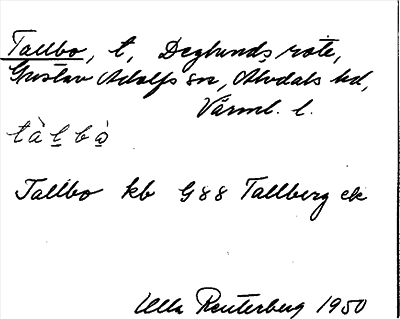 Tallbo, t, Deglunds rote,
Gustav Adolfs sn, Älvdals hd,
Värml. l.
tàḻbò̱
Tallbo kb G88 Tallberg ek
Ulla Reuterberg 1950